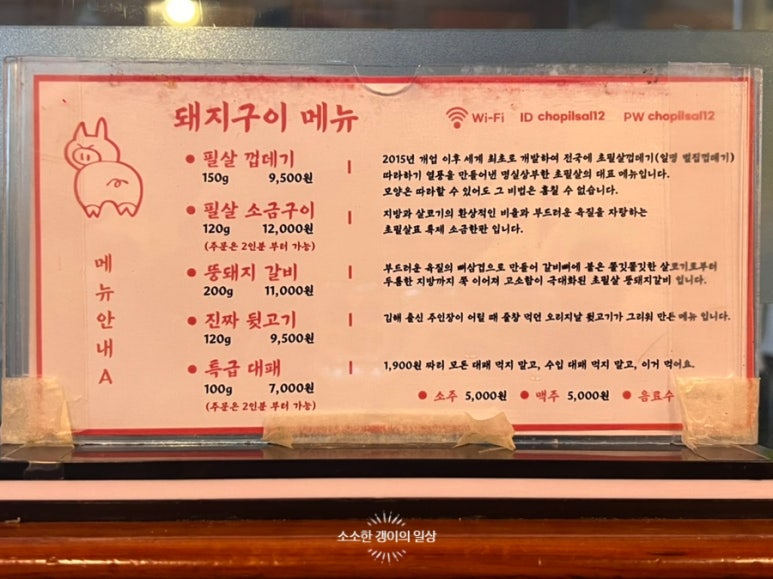 돼지구이 메뉴
Wi-Fi ID chopilsal12 PW chopilsal12
메뉴안내A
• 필살 껍데기
150g 9,500원
2015년 개업 이후 세계 최초로 개발하여 전국에 초필살껍데기(일명 벌집껍데기)
따라하기 열풍을 만들어낸 명실상부한 초필살의 대표 메뉴입니다.
모양은 따라할 수 있어도 그 비법은 훔칠 수 없습니다.
• 필살 소금구이
120g 12,000원
(주문은 2인분 부터 가능)
지방과 살코기의 환상적인 비율과 부드러운 육질을 자랑하는
초필살표 특제 소금한판 입니다.
• 뚱돼지 갈비
200g 11,000원
부드러운 육질의 뼈삼겹으로 만들어 갈비뼈에 붙은 쫄깃쫄깃한 살코기로부터
두툼한 지방까지 쭉 이어져 고소함이 극대화된 초필살 뚱돼지갈비 입니다.
• 진짜 뒷고기
120g 9,500원
김해 출신 주인장이 어릴 때 줄창 먹던 오리지날 뒷고기가 그리워 만든 메뉴 입니다.
• 특급 대패
100g 7,000원
(주문은 2인분 부터 가능)
1,900원 짜리 모든 대패 먹지 말고, 수입 대패 먹지 말고, 이거 먹어요.
• 소주 5,000원 • 맥주 5,000원 • 음료수
소소한 갱이의 일상